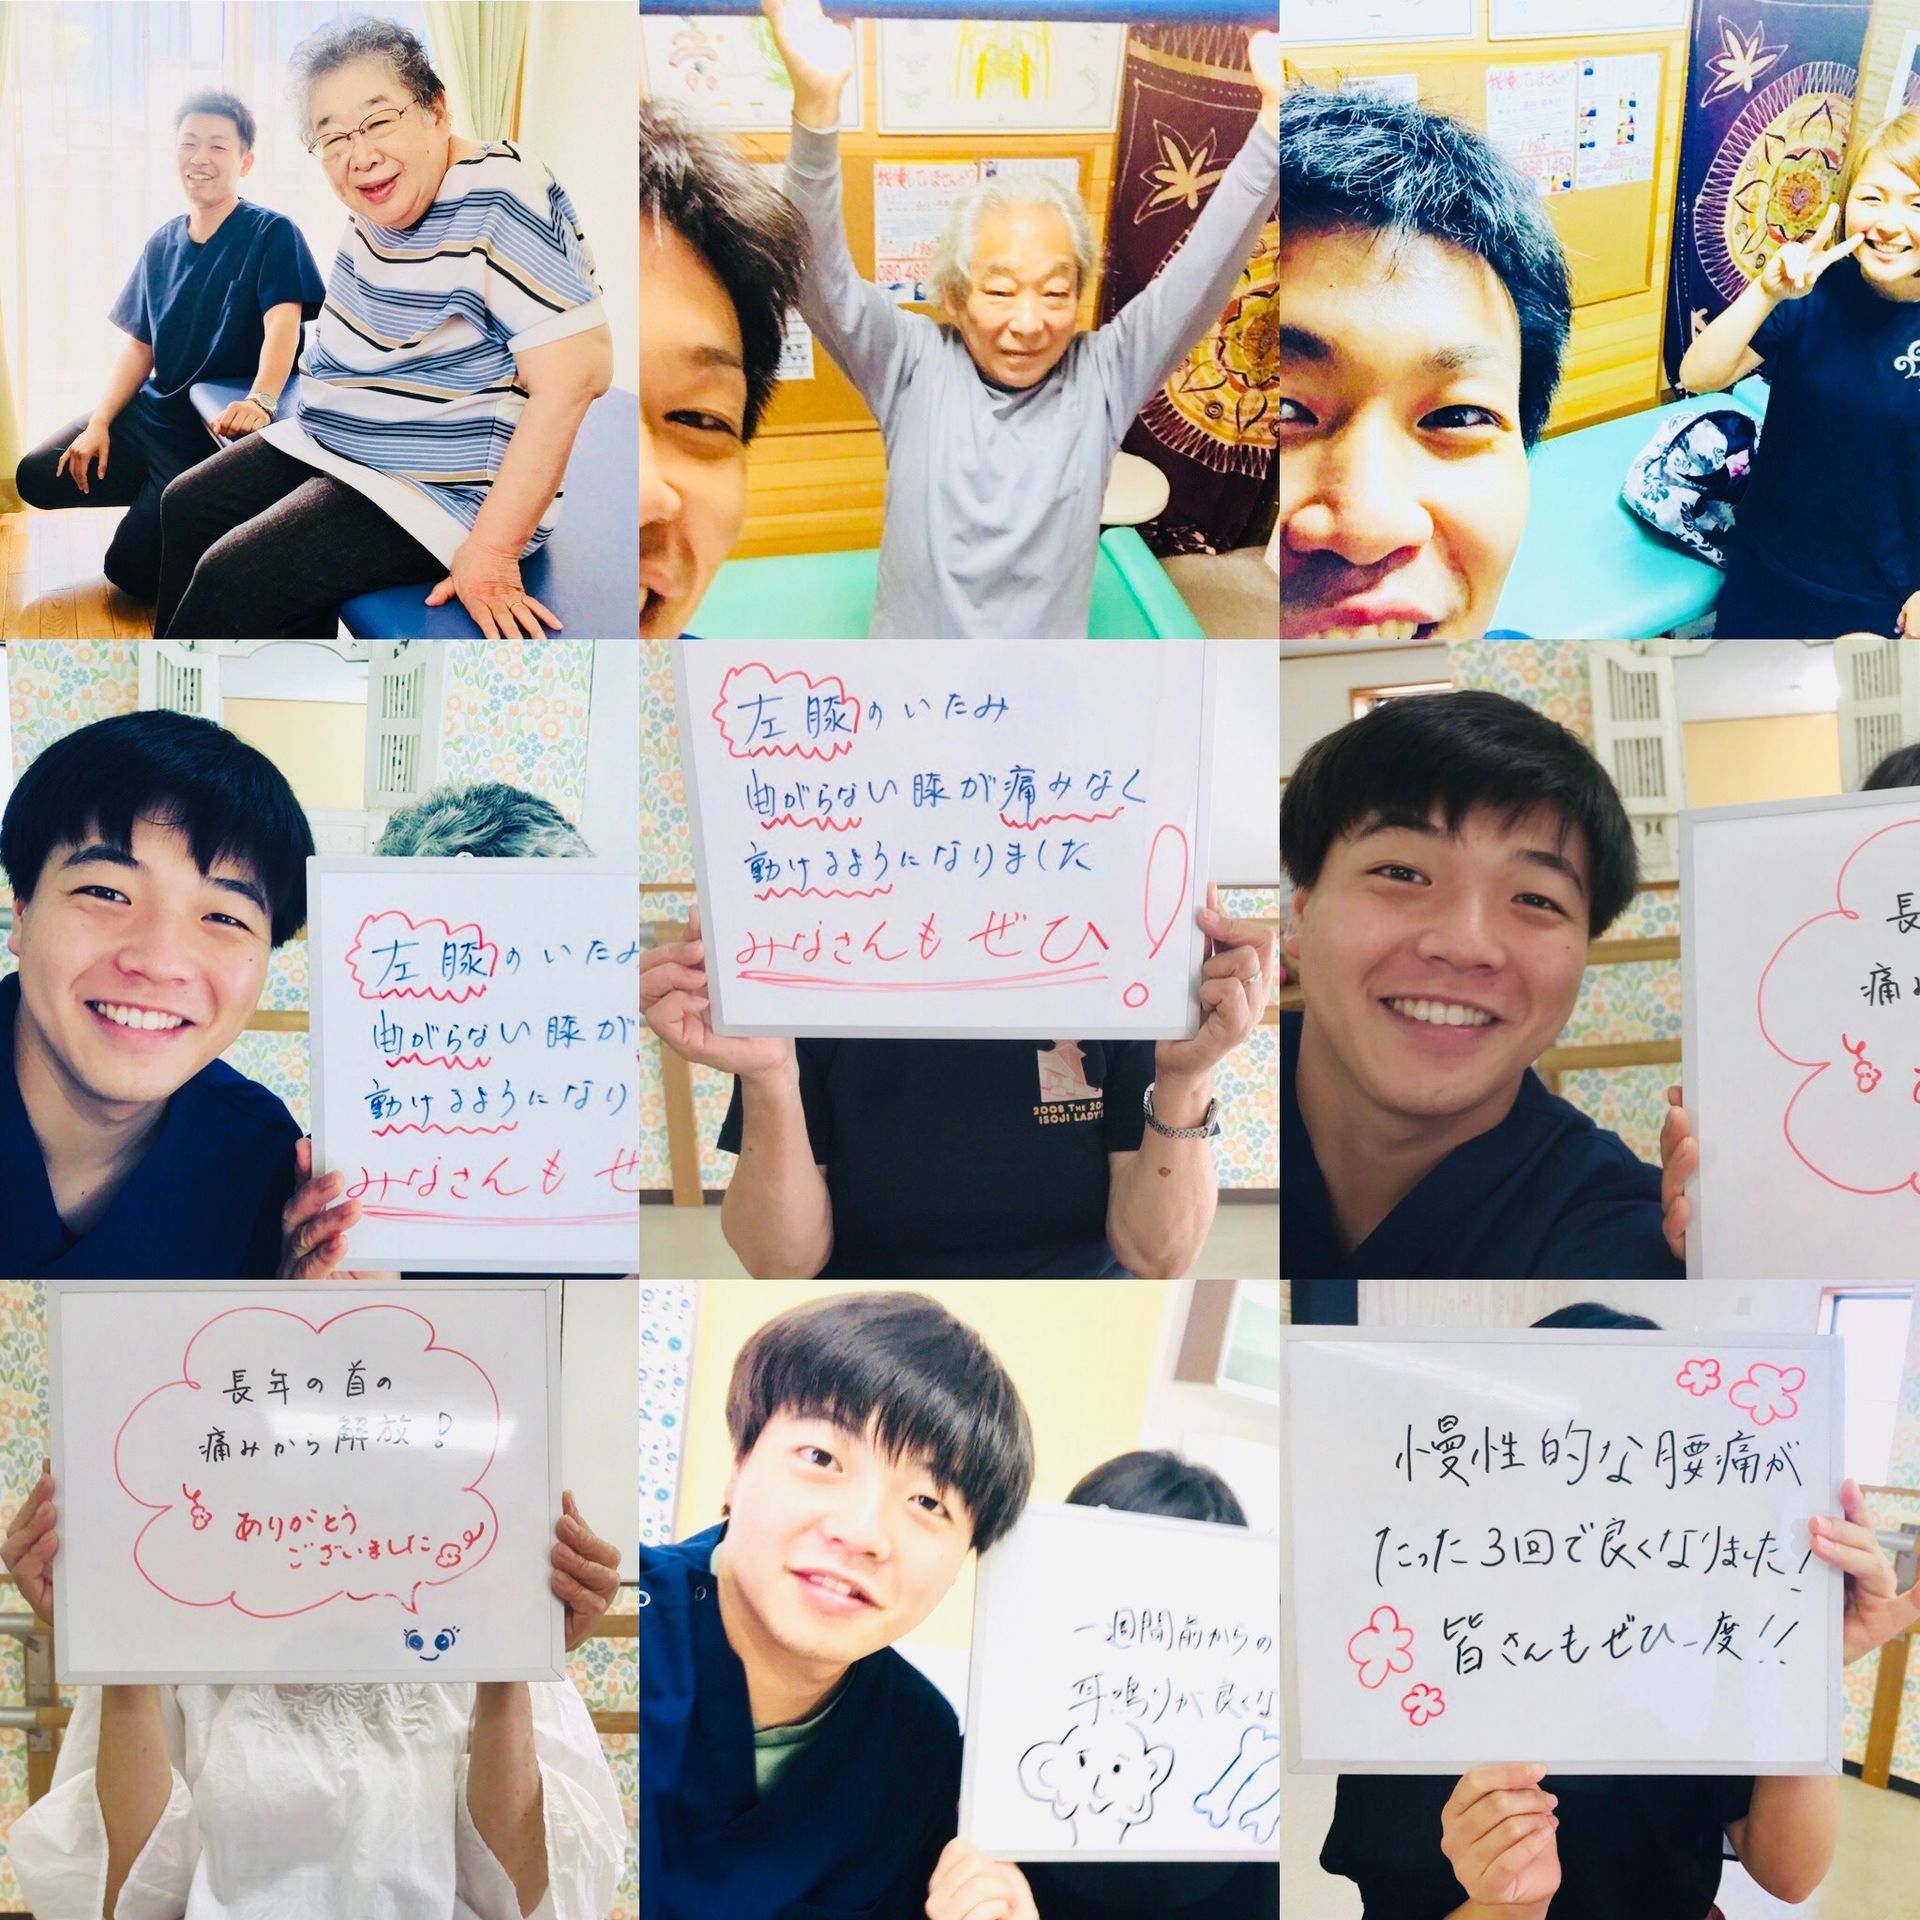 我慢していませんか?
080-489
我慢していませんか?
左膝のいたみ
曲がらない膝が
動けるようになり
みなさんもぜ
左膝のいたみ
曲がらない膝が痛みなく
動けるようになりました
みなさんもぜひ!
2008 THE 20
ISOJI LADY'
長
痛み
長年の首の
痛みから解放!
ありがとう
ございました
一週間前からの
耳鳴りが良くな
慢性的な腰痛が
たった3回で良くなりました!
皆さんもぜひ一度!!